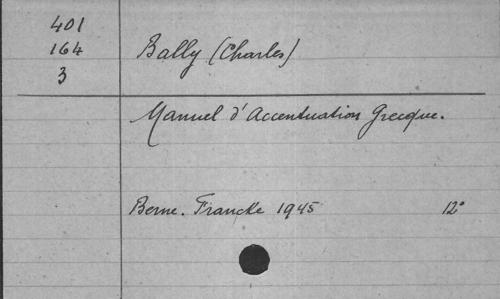 401
164
3
Bally (Charles)
Manuel d'Accentuation Grecque.
Berne. Francke 1945 12°